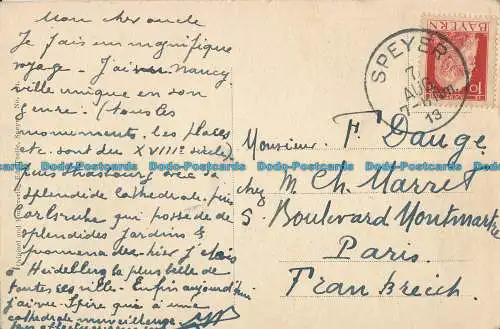 Mon cher oncle
Je fais un magnifique
voyage - J'ai vu Nancy
ville unique en son
genre: (tous les
monuments, les places
etc. sont du XVIIIe siècle)
puis Strasbourg avec sa
splendide cathédrale. puis
Carlsruhe qui possède de
splendides jardins &
promenades - hier j'étais
à Heidelberg la plus belle de
toutes ces ville - Enfin aujourd'hui
j'ai vu Spire qui a une
cathédrale merveilleuse
SPEYER
7.
AUG.
7-8 Nm.
13
BAYERN
10
Monsieur F. Dauge
chez M. Ch. Marret
5. Boulevard Montmartre
Paris
Frankreich
Dodo-Postcards Dodo-Postcards Dodo-Postcards Dodo-Postcards